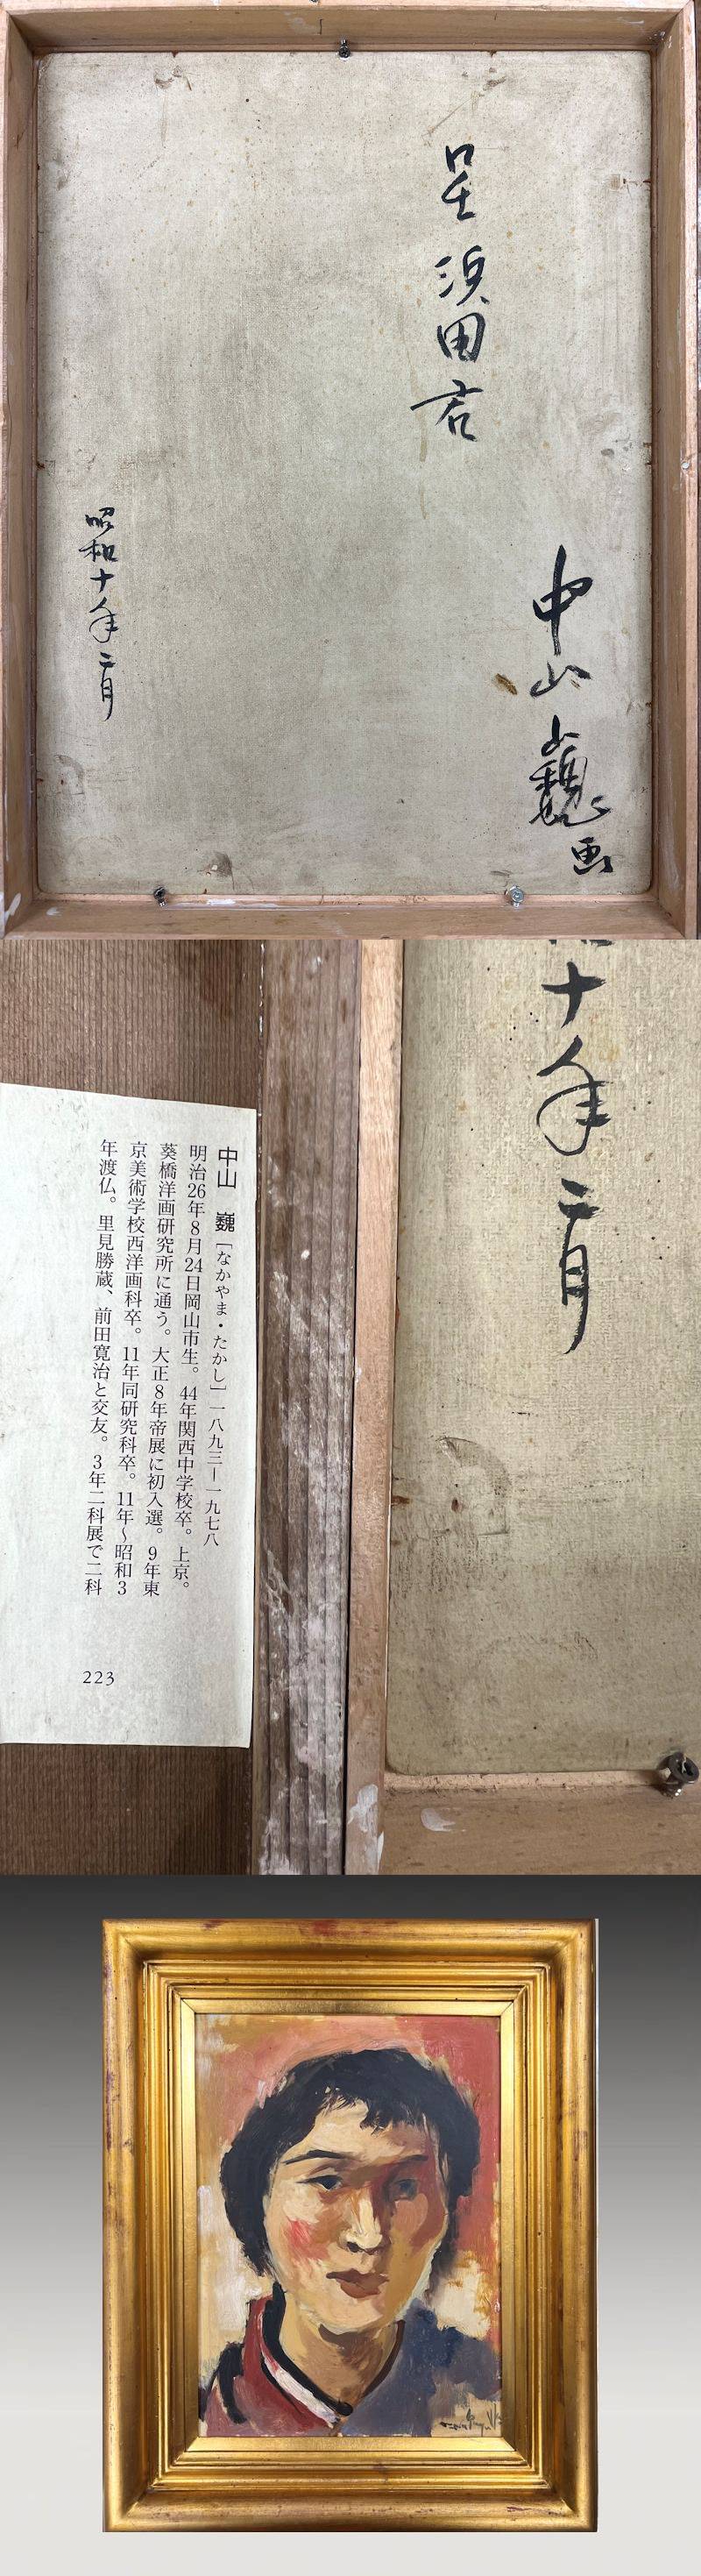 呈 浜田君
中山巍画
昭和十年二月
十年二月
中山 巍 [なかやま・たかし] 一八九三―一九七八
明治26年8月24日岡山市生。44年関西中学校卒。上京。
葵橋洋画研究所に通う。大正8年帝展に初入選。9年東
京美術学校西洋画科卒。11年同研究科卒。11年～昭和3
年渡仏。里見勝蔵、前田寛治と交友。3年二科展で二科
223